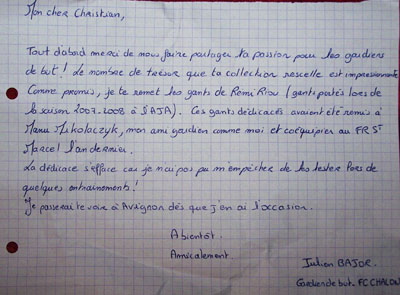 Mon cher Christian,
Tout d'abord merci de nous faire partager ta passion pour les gardiens
de but! Le nombre de trésor que ta collection rescelle est impressionnante
Comme promis, je te remet les gants de Rémi Riou (gants portés lors de
la saison 2007-2008 à l'AJA). Ces gants dédicacés avaient été remis à
Manu Mikolaczyk, mon ami gardien comme moi et coéquipier au FR St
Marcel l'an dernier.
La dédicace s'efface car je n'ai pas pu m'empêcher de les tester lors de
quelques entraînements!
Je passerai te voir à Avignon dès que j'en ai l'occasion.
A bientôt.
Amicalement.
Julien BAJOR.
Gardien de but. FC CHALON